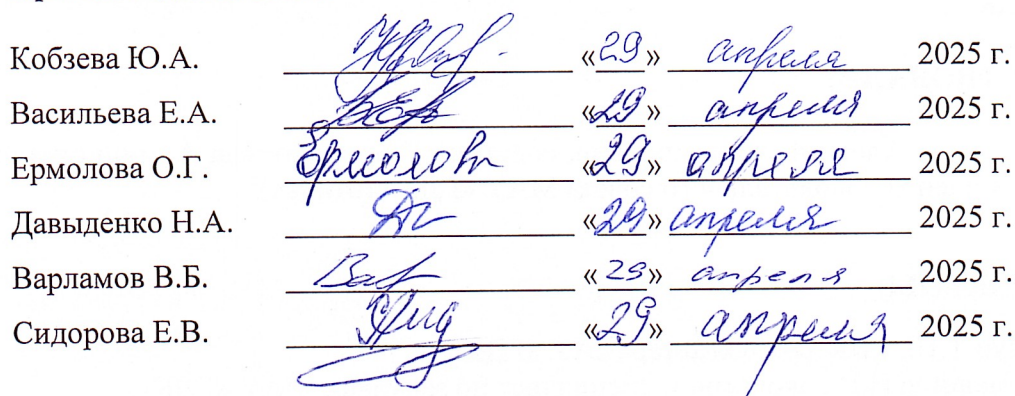 Кобзева Ю.А. «29» апреля 2025 г.
Васильева Е.А. «29» апреля 2025 г.
Ермолова О.Г. Ермолова «29» апреля 2025 г.
Давыденко Н.А. «29» апреля 2025 г.
Варламов В.Б. «29» апреля 2025 г.
Сидорова Е.В. «29» апреля 2025 г.